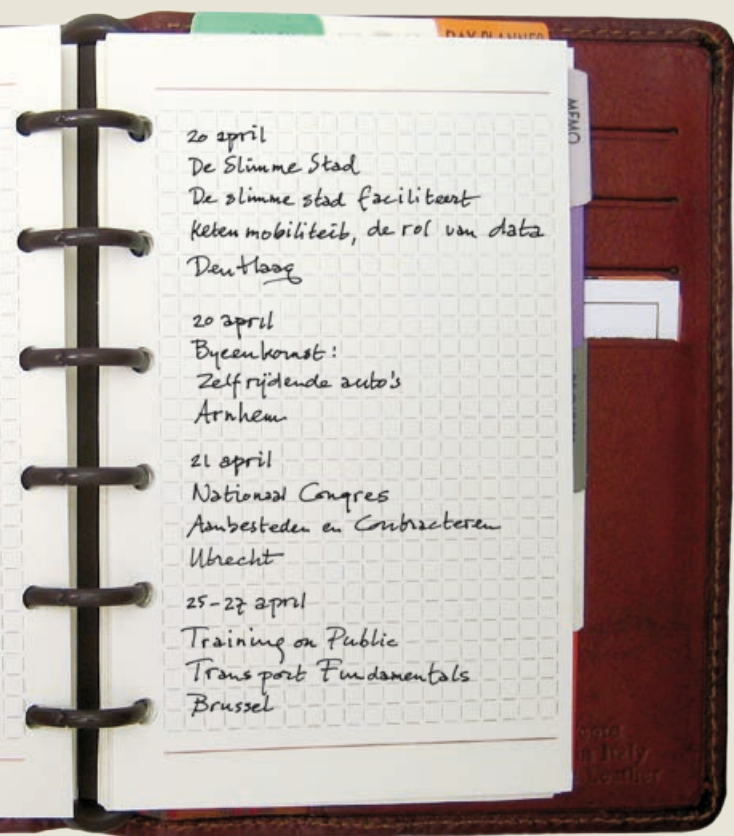 DAY PLANNER
MEMO
20 april
De Slimme Stad
De slimme stad faciliteert
ketenmobiliteit, de rol van data
Den Haag
20 april
Byeenkomst:
Zelfrijdende auto's
Arnhem
21 april
Nationaal Congres
Aanbesteden en Contracteren
Utrecht
25-27 april
Training on Public
Transport Fundamentals
Brussel
Italy
Leather